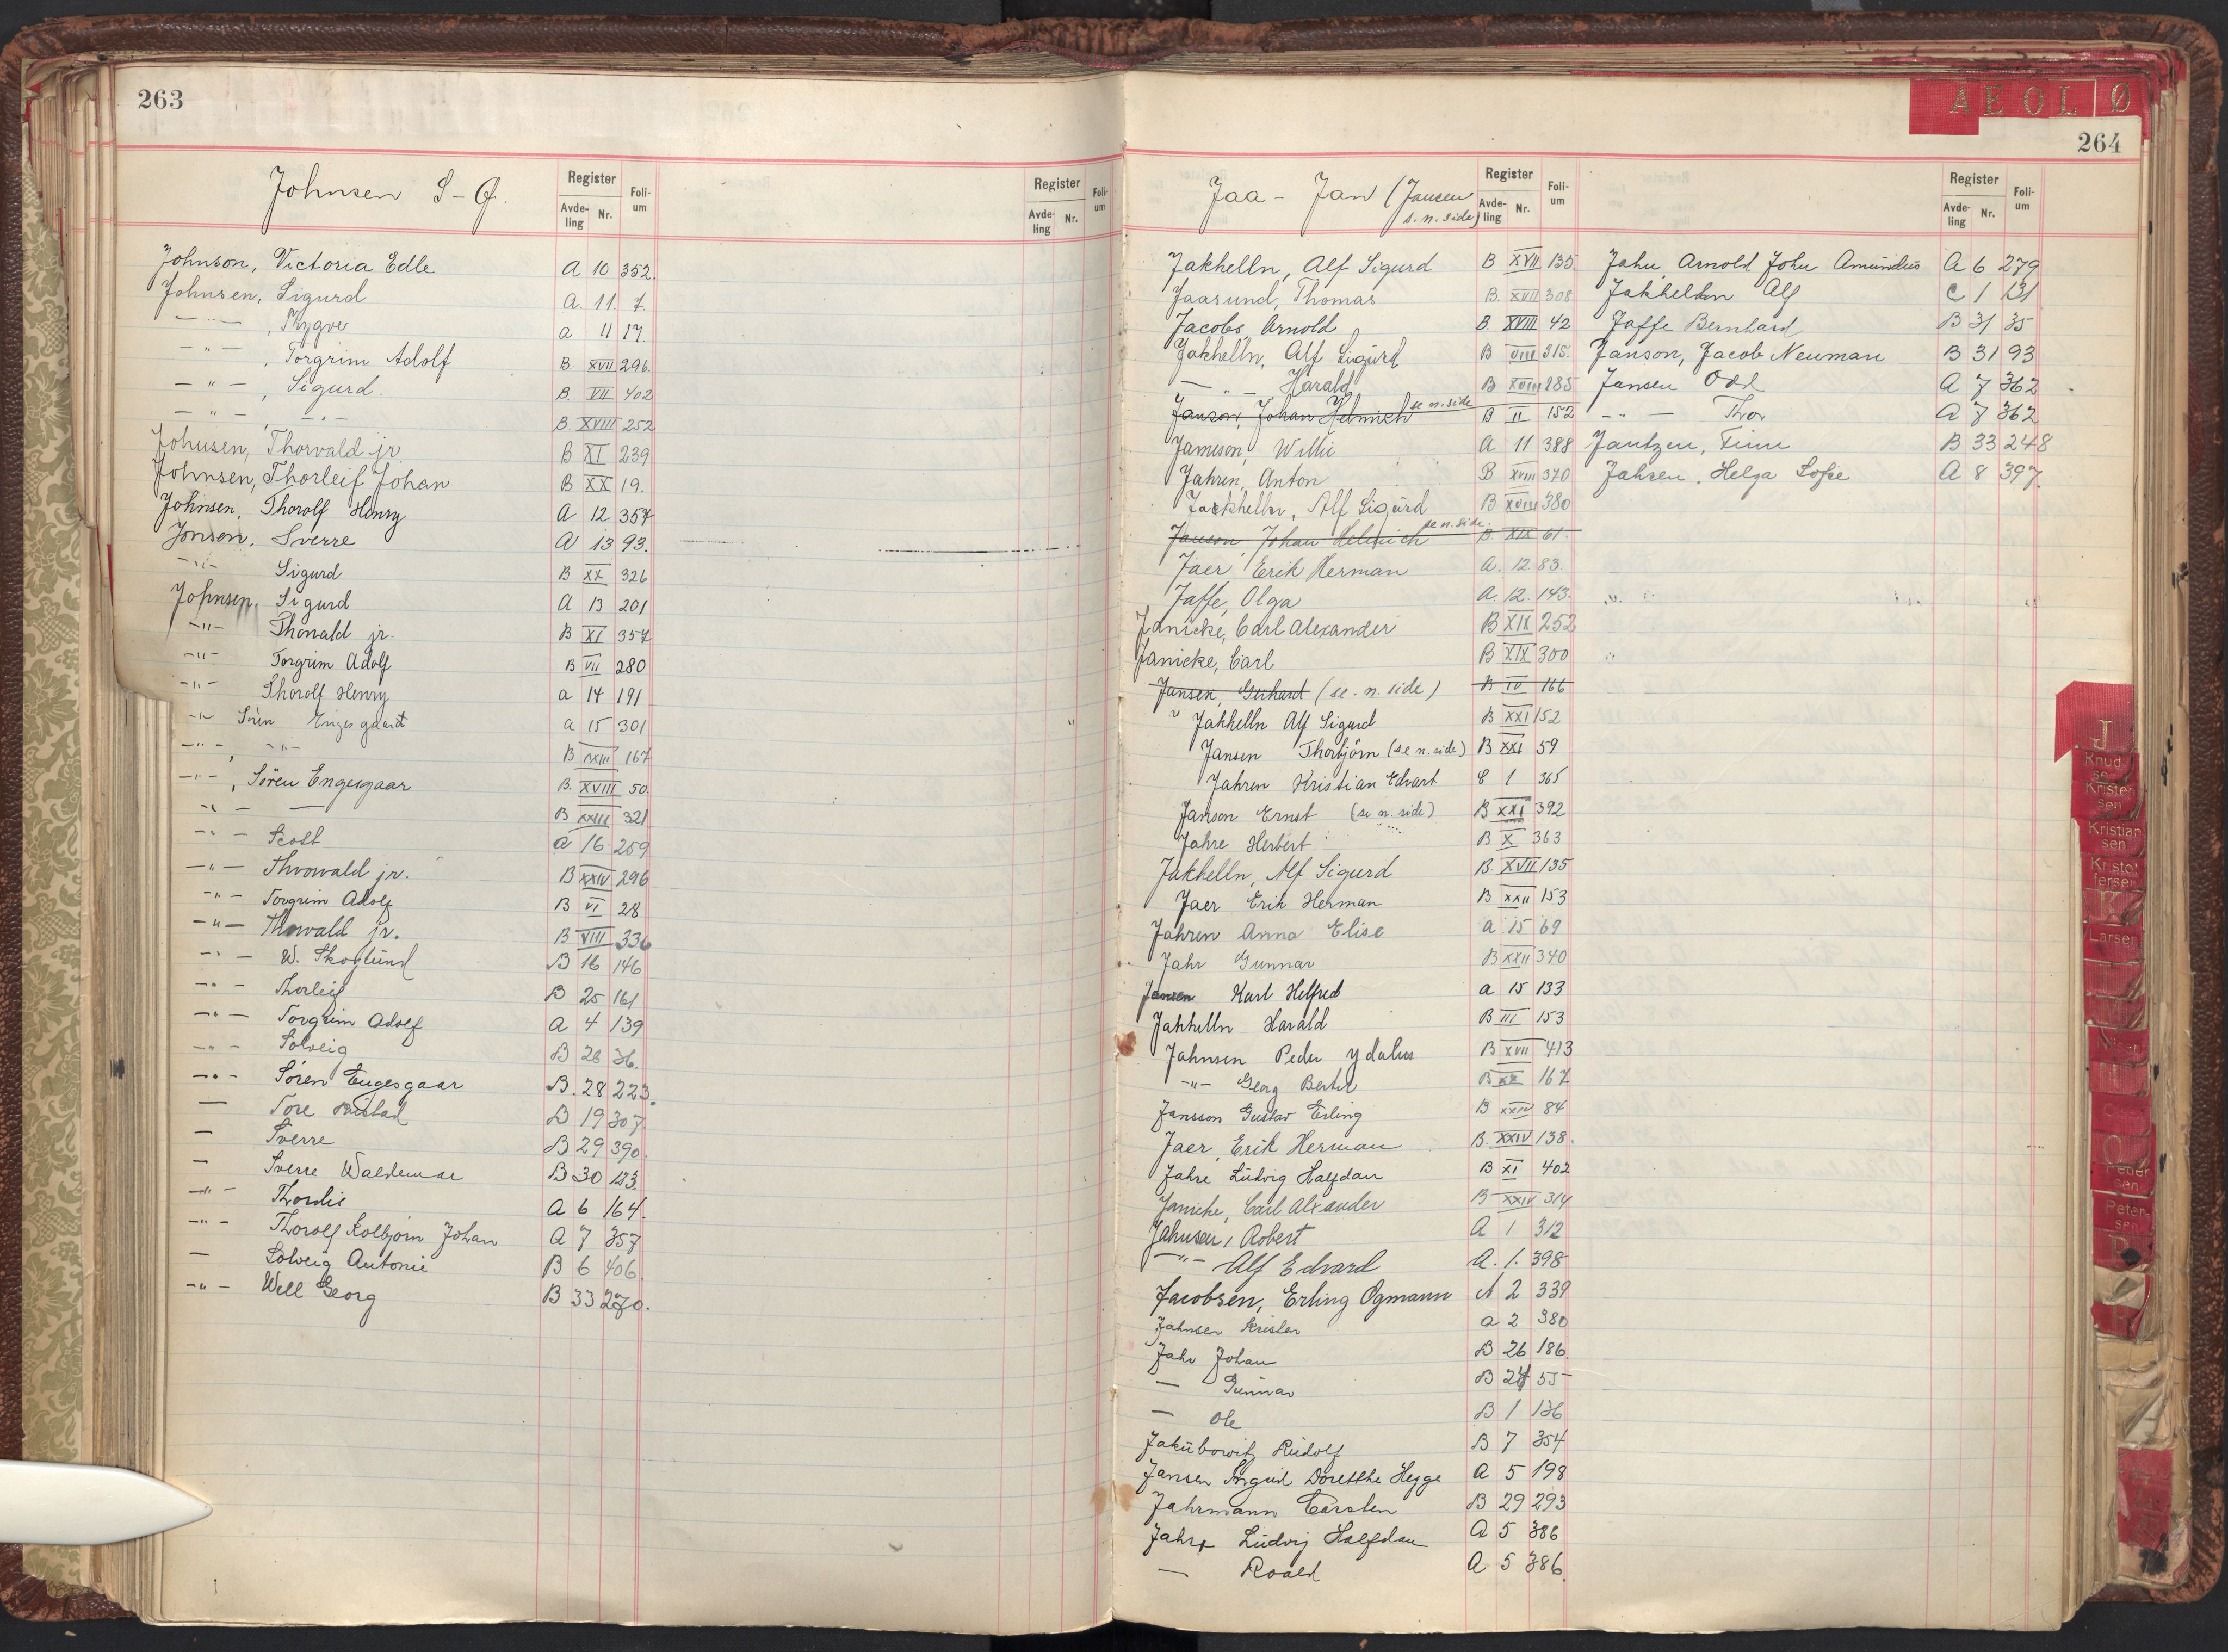 263
Johnsen S - Ø.
Register
Avde-
ling
Nr.
Foli-
um
Register
Avde-
ling
Nr.
Foli-
um
Johnson, Victoria Edle A 10 352.
Johnsen, Sigurd A. 11. 7.
— " — , Trygve A 11 17.
— " — , Torgrim Adolf B. XVII 296.
— " — , Sigurd. B. VII 402
— " — , — " — B. XVIII 252
Johnsen, Thorvald jr. B XI 239
Johnsen, Thorleif Johan B XX 19.
Johnsen, Thorolf Henry A 12 357
Jonsen, Sverre A 13 93.
— " — Sigurd B XX 326
Johnsen, Sigurd A 13 201
— " — Thorvald jr. B XI 357
— " — Torgrim Adolf B VII 280
— " — Thorolf Henry A 14 191
— " — Sören Engesgaard A 15 301
— " — , — " — B 167
— " — , Sören Engesgaar B. XVIII 50.
— " — — B XXIII 321
— " — Scott A 16 259
— " — Thorvald jr. B XXIV 296
— " — Torgrim Adolf B VI 28
— " — Thorvald jr. B VIII 336
— " — W. Skoglund B 16 146
— " — Thorleif B 25 161
— " — Torgrim Adolf A 4 139
— " — Solveig B 26 36.
— " — Sören Engesgaar B. 28 223.
— Tore B 19 307
— Sverre B 29 390.
— Sverre Waldemar B 30 123.
— " — Thordis A 6 164.
— " — Thorolf Kolbjörn Johan A 7 357
— Solveig Antonie B 6 406.
— " — Well Georg B 33 270.
A E O L Ø
264
Jaa - Jan (Jansen
s. n. side)
Register
Avde-
ling
Nr.
Foli-
um
Register
Avde-
ling
Nr.
Foli-
um
Jakhelln, Alf Sigurd B XVII 135.
Jaasund, Thomas B. XVII 308
Jacobs, Arnold B. XVIII 42
Jakhelln, Alf Sigurd B VIII 315.
— " — Harald B XVIII 285
Janson, Johan Helmich se n. side B II 152
Jameson, Willie A 11 388
Jahren, Anton B XVIII 370
Jackhelln, Alf Sigurd B XVIII 380
Janson, Johan Helmich se n. side. B. XIX 61.
Jaer, Erik Herman A. 12. 83.
Jaffe, Olga A. 12. 143.
Janicke, Carl Alexander B XIX 252
Janicke, Carl B XIX 300
Jansen, Gerhard (se. n. side) B IV 166
Jakhelln Alf Sigurd B XXI 152
Jansen Thorbjörn (se n. side) B XXI 59
Jahren Kristian Edvart C 1 365
Janson Ernst (se n. side) B XXI 392
Jahre Herbert B X 363
Jakhelln, Alf Sigurd B. XVII 135
Jaer Erik Herman B XXII 153
Jahren Anna Elise A 15 69
Jahr Gunnar B XXII 340
Jansen Karl Helfred A 15 133
Jakhelln Harald B III 153
Jahnsen Peder Ydalus B XVII 413
— " — Georg Bertil B XX 167
Jansson Gustav Erling B XXIV 84
Jaer, Erik Herman B. XXIV 138.
Jahre Ludvig Halfdan B XI 402
Janicke, Carl Alexander B XXIV 314
Jahnsen, Robert A 1 312
— " — Alf Edvard A. 1. 398
Jacobsen, Erling Ogmann A 2 339
Jahnsen Kristen A 2 380
Jahr Johan B 26 186.
— Gunnar B 24 55
— Ole B 1 136
Jakubowitz Rudolf B 7 354
Jansen Ingrid Dorethhe Hegge A 5 198
Jahrmann Carsten B 29 293
Jahre Ludvig Halfdan A 5 386
— Roald A 5 386.
Jahn, Arnold John Amundus A 6 279
Jakhelln Alf C 1 131
Jaffe Bernhard B 31 35
Janson, Jacob Neuman B 31 93
Jansen Odd A 7 362
— " — Thor A 7 362
Jantzen, Finn B 33 248
Jahren, Helga Sofie A 8 397.
J
Knud
se
Kristen
sen
Kristian
sen
Kristof
fersen
K
Larsen
O
Peder
sen
Peter-
sen
P
R